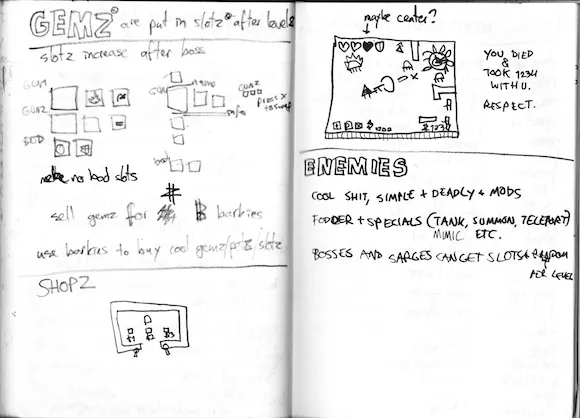 GEMZ are put in slotz after levels
slotz increase after boss
GUN1
GUN2
BOD
no bad slots
sell gemz for
barkies
use barkies to buy cool gemz/ /slotz
SHOPZ
maybe center?
YOU DIED
&
TOOK 1234
WITH U.
RESPECT.
ENEMIES
COOL SHIT, SIMPLE + DEADLY + MODS
FODDER + SPECIALS (TANK, SUMMON, TELEPORT)
MIMIC ETC.
BOSSES AND SARGES CAN GET SLOTS + RANDOM
PER LEVEL